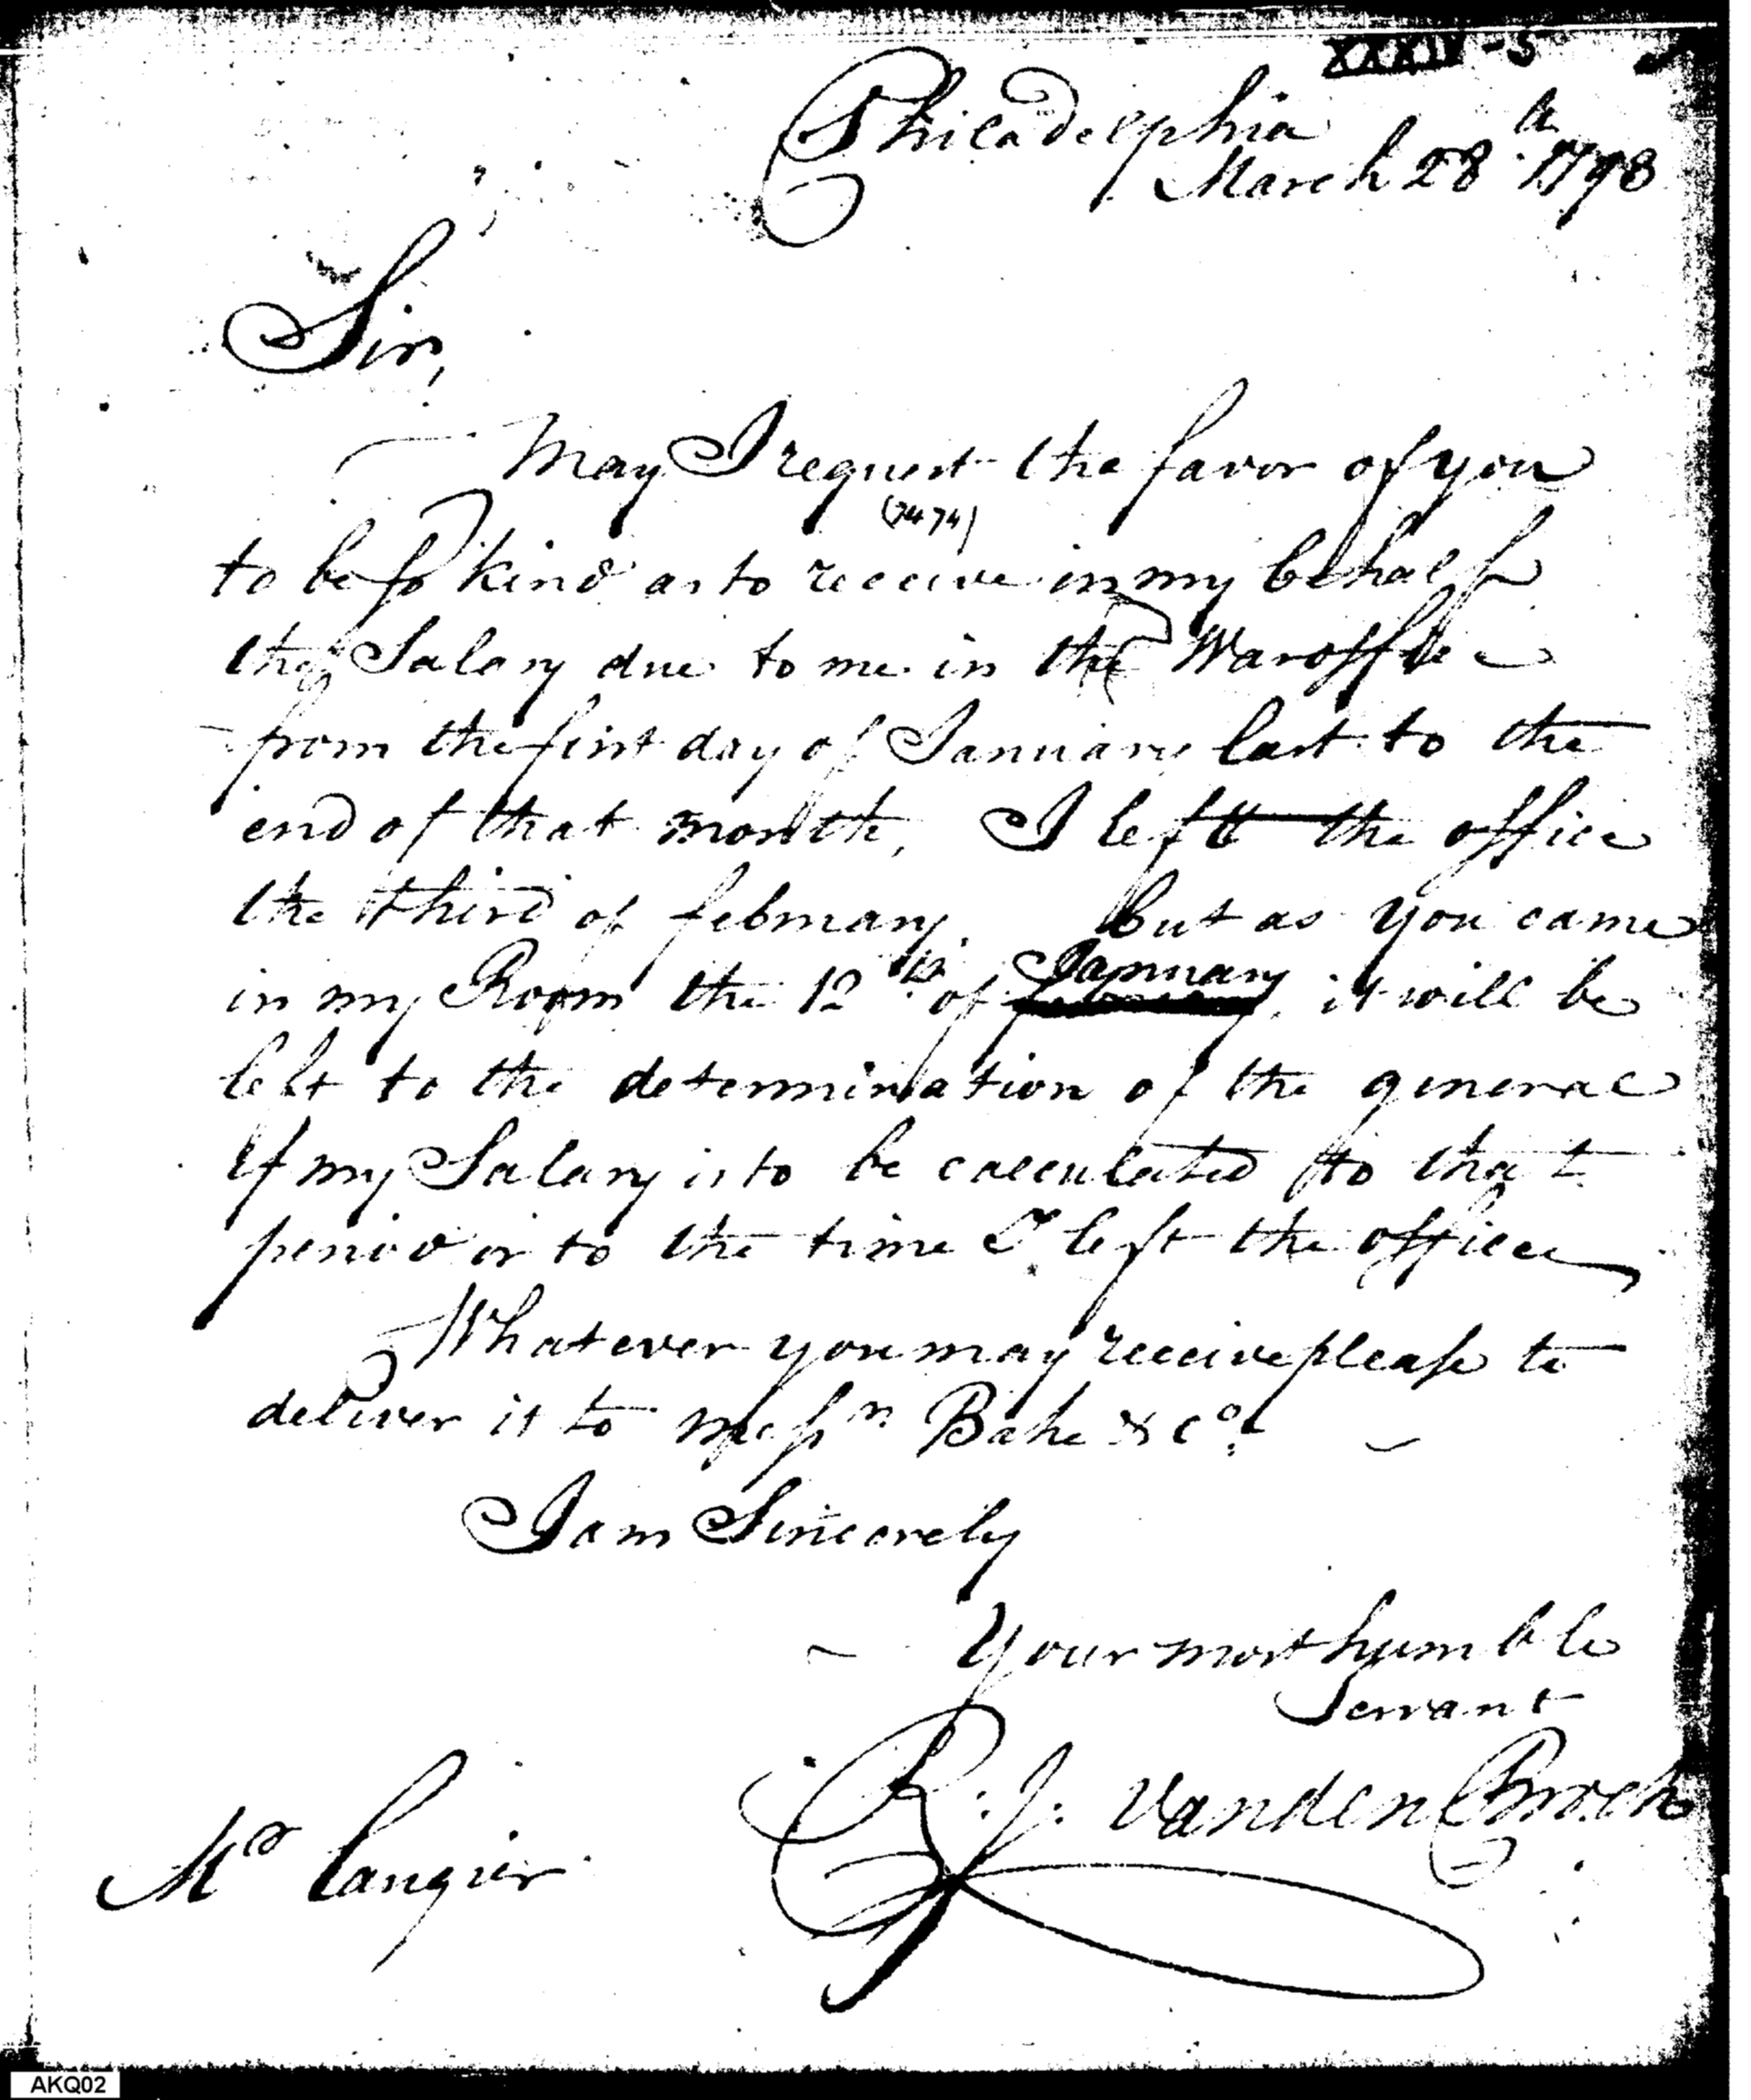 XXXIV-5
Philadelphia
March 28th 1798
Sir,
May I request the favor of you
(7474)
to be so kind as to receive in my behalf
the Salary due to me in the Waroffice
from the first day of January last to the
end of that month, I left the office
the third of february. but as you came
in my Room the 12th of february January, it will be
left to the determination of the general
if my Salary is to be calculated to that
period or to the time I left the office,
Whatever you may receive please to
deliver it to messrs Bake & Co.
I am Sincerely
Your most humble
Servant
R: J: Vanden Broek
Mr
AKQ02